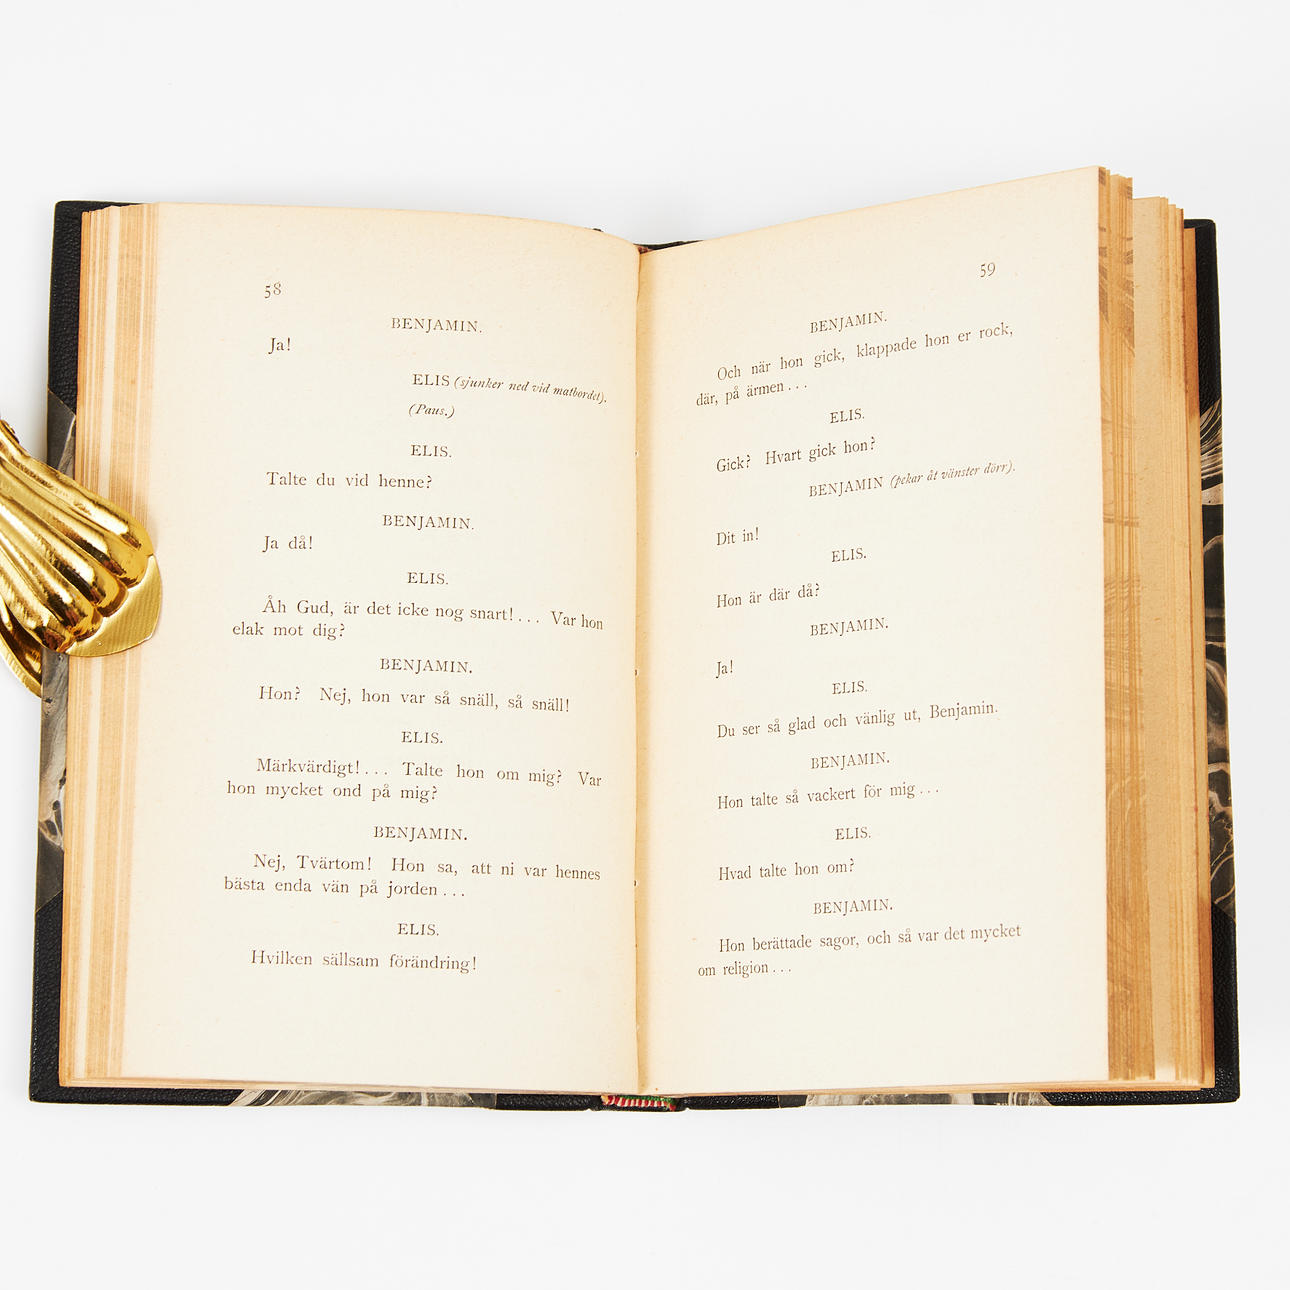 58
BENJAMIN.
Ja!
ELIS (sjunker ned vid matbordet).
(Paus.)
ELIS.
Talte du vid henne?
BENJAMIN.
Ja då!
ELIS.
Åh Gud, är det icke nog snart!... Var hon
elak mot dig?
BENJAMIN.
Hon? Nej, hon var så snäll, så snäll!
ELIS.
Märkvärdigt!... Talte hon om mig? Var
hon mycket ond på mig?
BENJAMIN.
Nej, Tvärtom! Hon sa, att ni var hennes
bästa enda vän på jorden...
ELIS.
Hvilken sällsam förändring!
59
BENJAMIN.
Och när hon gick, klappade hon er rock,
där, på ärmen...
ELIS.
Gick? Hvart gick hon?
BENJAMIN (pekar åt vänster dörr).
Dit in!
ELIS.
Hon är där då?
BENJAMIN.
Ja!
ELIS.
Du ser så glad och vänlig ut, Benjamin.
BENJAMIN.
Hon talte så vackert för mig...
ELIS.
Hvad talte hon om?
BENJAMIN.
Hon berättade sagor, och så var det mycket
om religion...